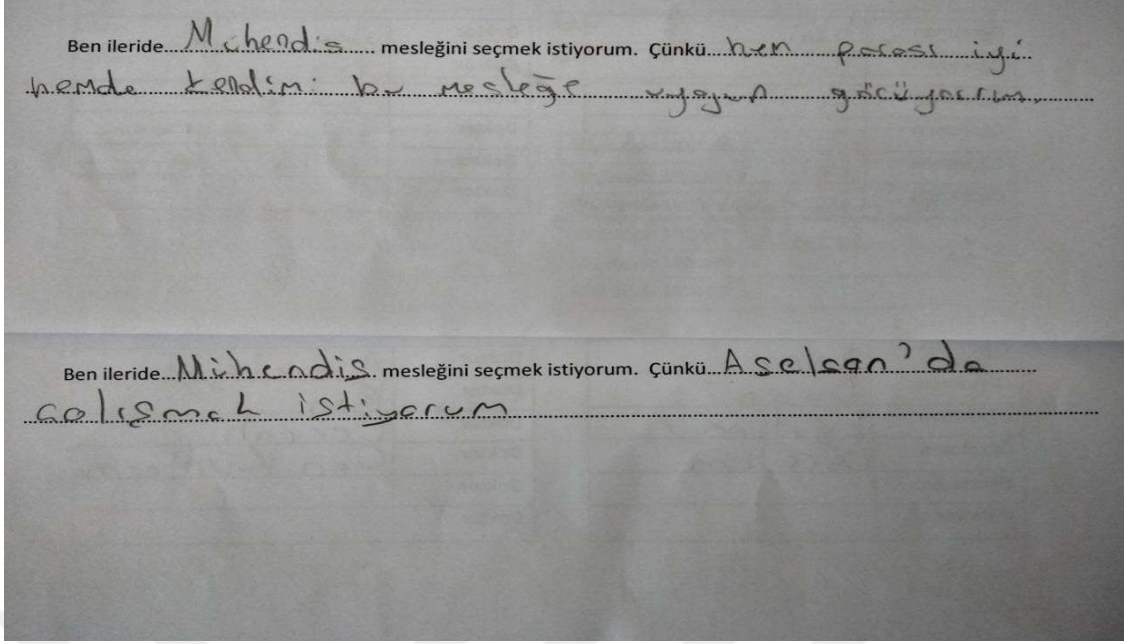 Ben ileride...Mühendis...... mesleğini seçmek istiyorum. Çünkü...hem parası iyi..
hemde kendimi bu mesleğe uygun görüyorum.
Ben ileride...Mühendis. mesleğini seçmek istiyorum. Çünkü...Aselsan'da
çalışmak istiyorum